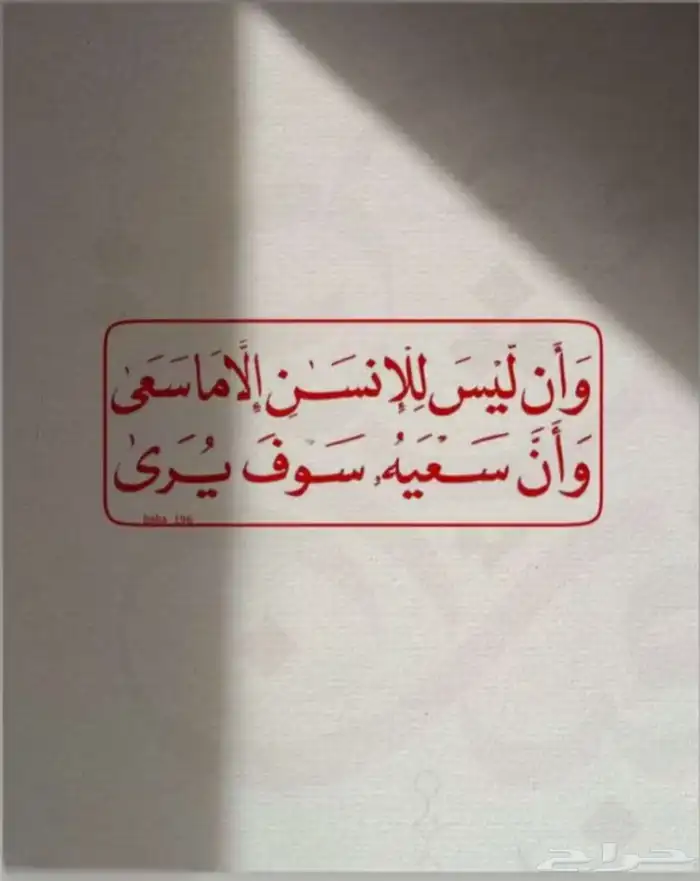 وَأَن لَّيْسَ لِلْإِنسَٰنِ إِلَّا مَا سَعَىٰ
وَأَنَّ سَعْيَهُۥ سَوْفَ يُرَىٰ
baba_196
حراج